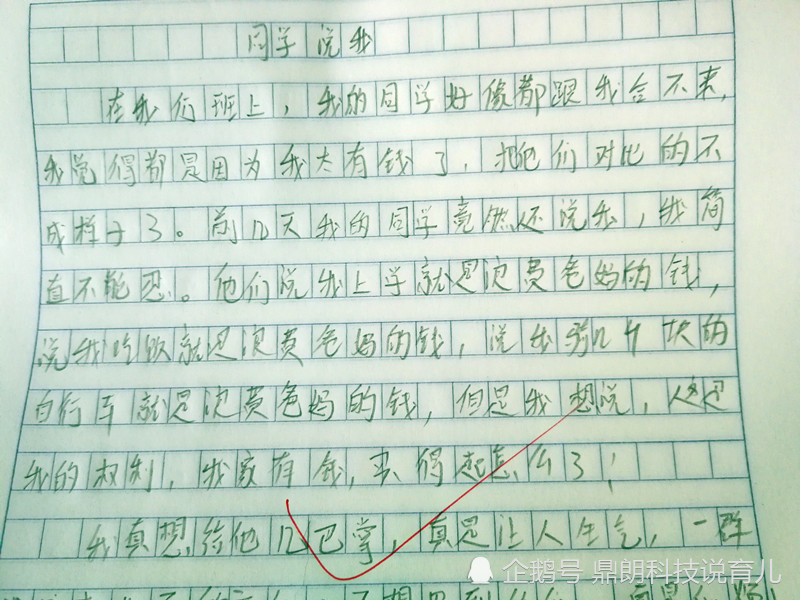 同学说我
在我们班上，我的同学好像都跟我合不来，
我觉得都是因为我太有钱了，把他们对比的不
成样子了。前几天我的同学竟然还说我，我简
直不能忍。他们说我上学就是浪费爸妈的钱，
说我吃饭就是浪费爸妈的钱，说我骑几千块的
自行车就是浪费爸妈的钱，但是我想说，这是
我的权利，我家有钱，买得起怎么了！
我真想给他几巴掌，真是让人生气，一群
企鹅号 鼎朗科技说育儿